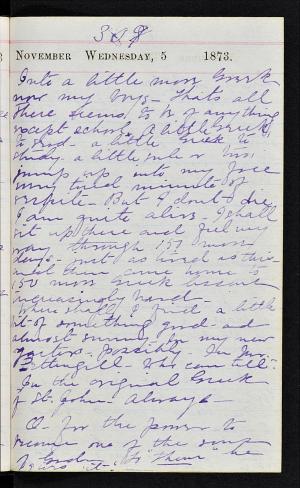 NOVEMBER WEDNESDAY, 5 1873.
Into a little more Greek
now my boys - That's all
there seems to be of anything
except school. A little Greek
to read - a little Greek to
study - a little
jump up into my face
every tired minute of
respite - But I don't die
I am quite alive - I shall
sit up there and feel my
way through 157 more
days - just as tired as this
and then come home to
150 more Greek lessons
increasingly hard -
Where shall I find a little
bit of something good - and
almost sunny for my new
quarters. Possibly - In Mr.
Pettingill - Who can tell.
In the original Greek
of St. John - Always -
O - for the power to
become one of the sons
of God - "to them" he